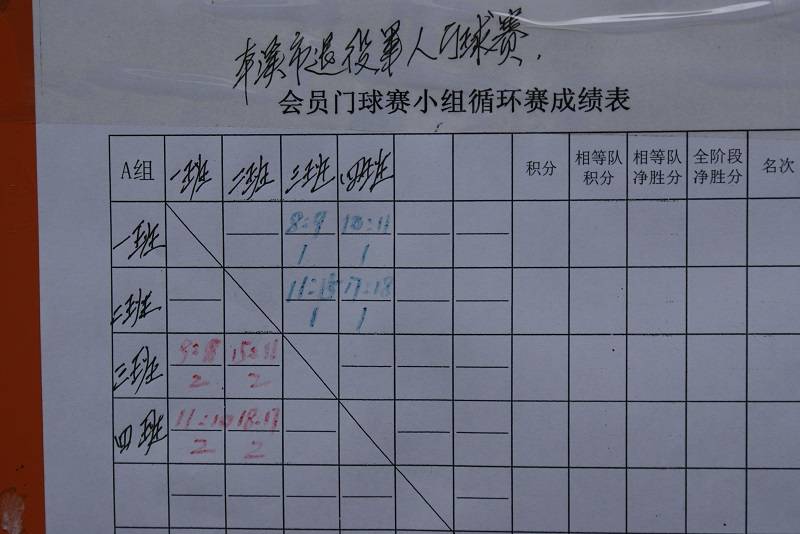 本溪市退役军人门球赛.
会员门球赛小组循环赛成绩表
A组 一班 二班 三班 四班 积分 相等队积分 相等队净胜分 全阶段净胜分 名次
一班 8:9 10:11
1 1
二班 11:15 17:18
1 1
三班 9:8 15:11
2 2
四班 11:10 18:17
2 2